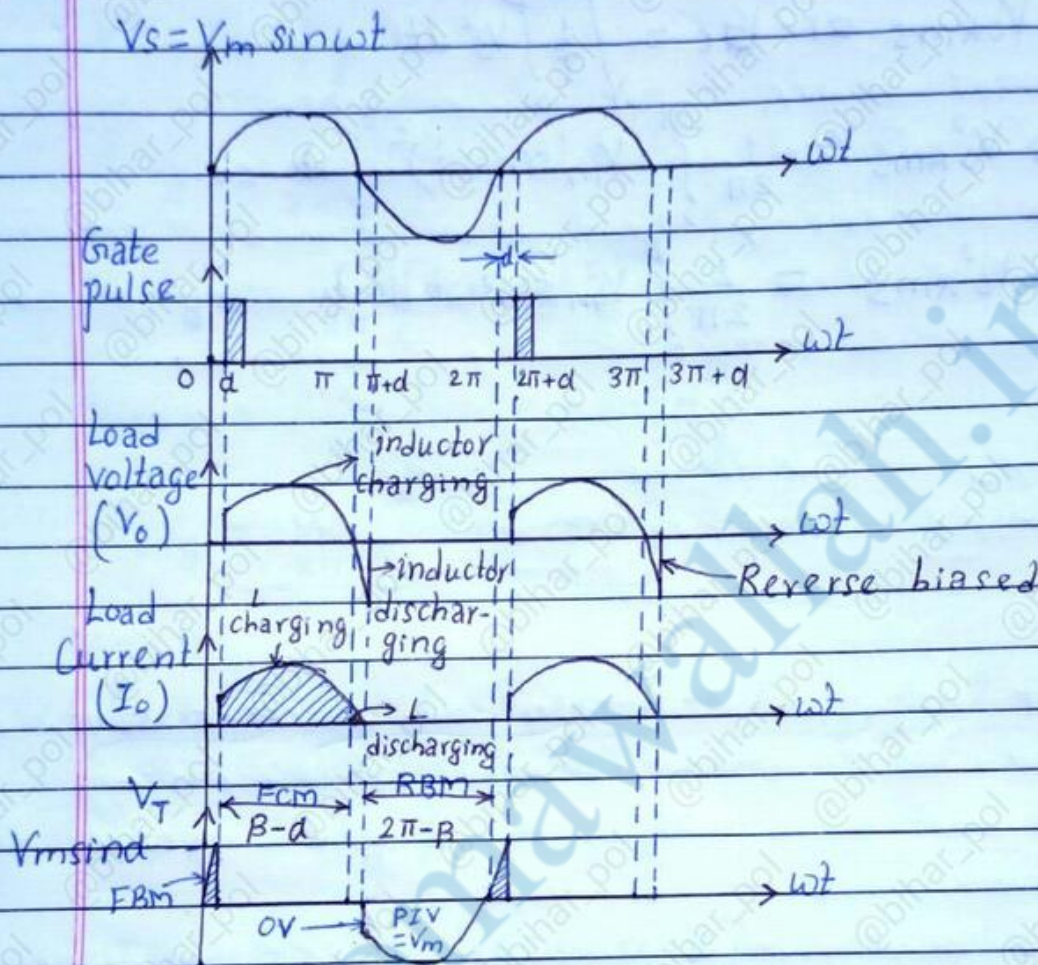 Vs = Vm sinωt
ωt
Gate
pulse
d
ωt
0 d π π+d 2π 2π+d 3π 3π+d
Load
voltage
(V₀)
inductor
charging
ωt
→inductor
dischar-
ging
Reverse biased
Load
Current
(I₀)
L
charging
→ L
discharging
ωt
V_T
FCM
β-d
RBM
2π-β
Vmsind
FBM
ωt
OV
PIV
=Vm
@bihar_pol
mawallah.in